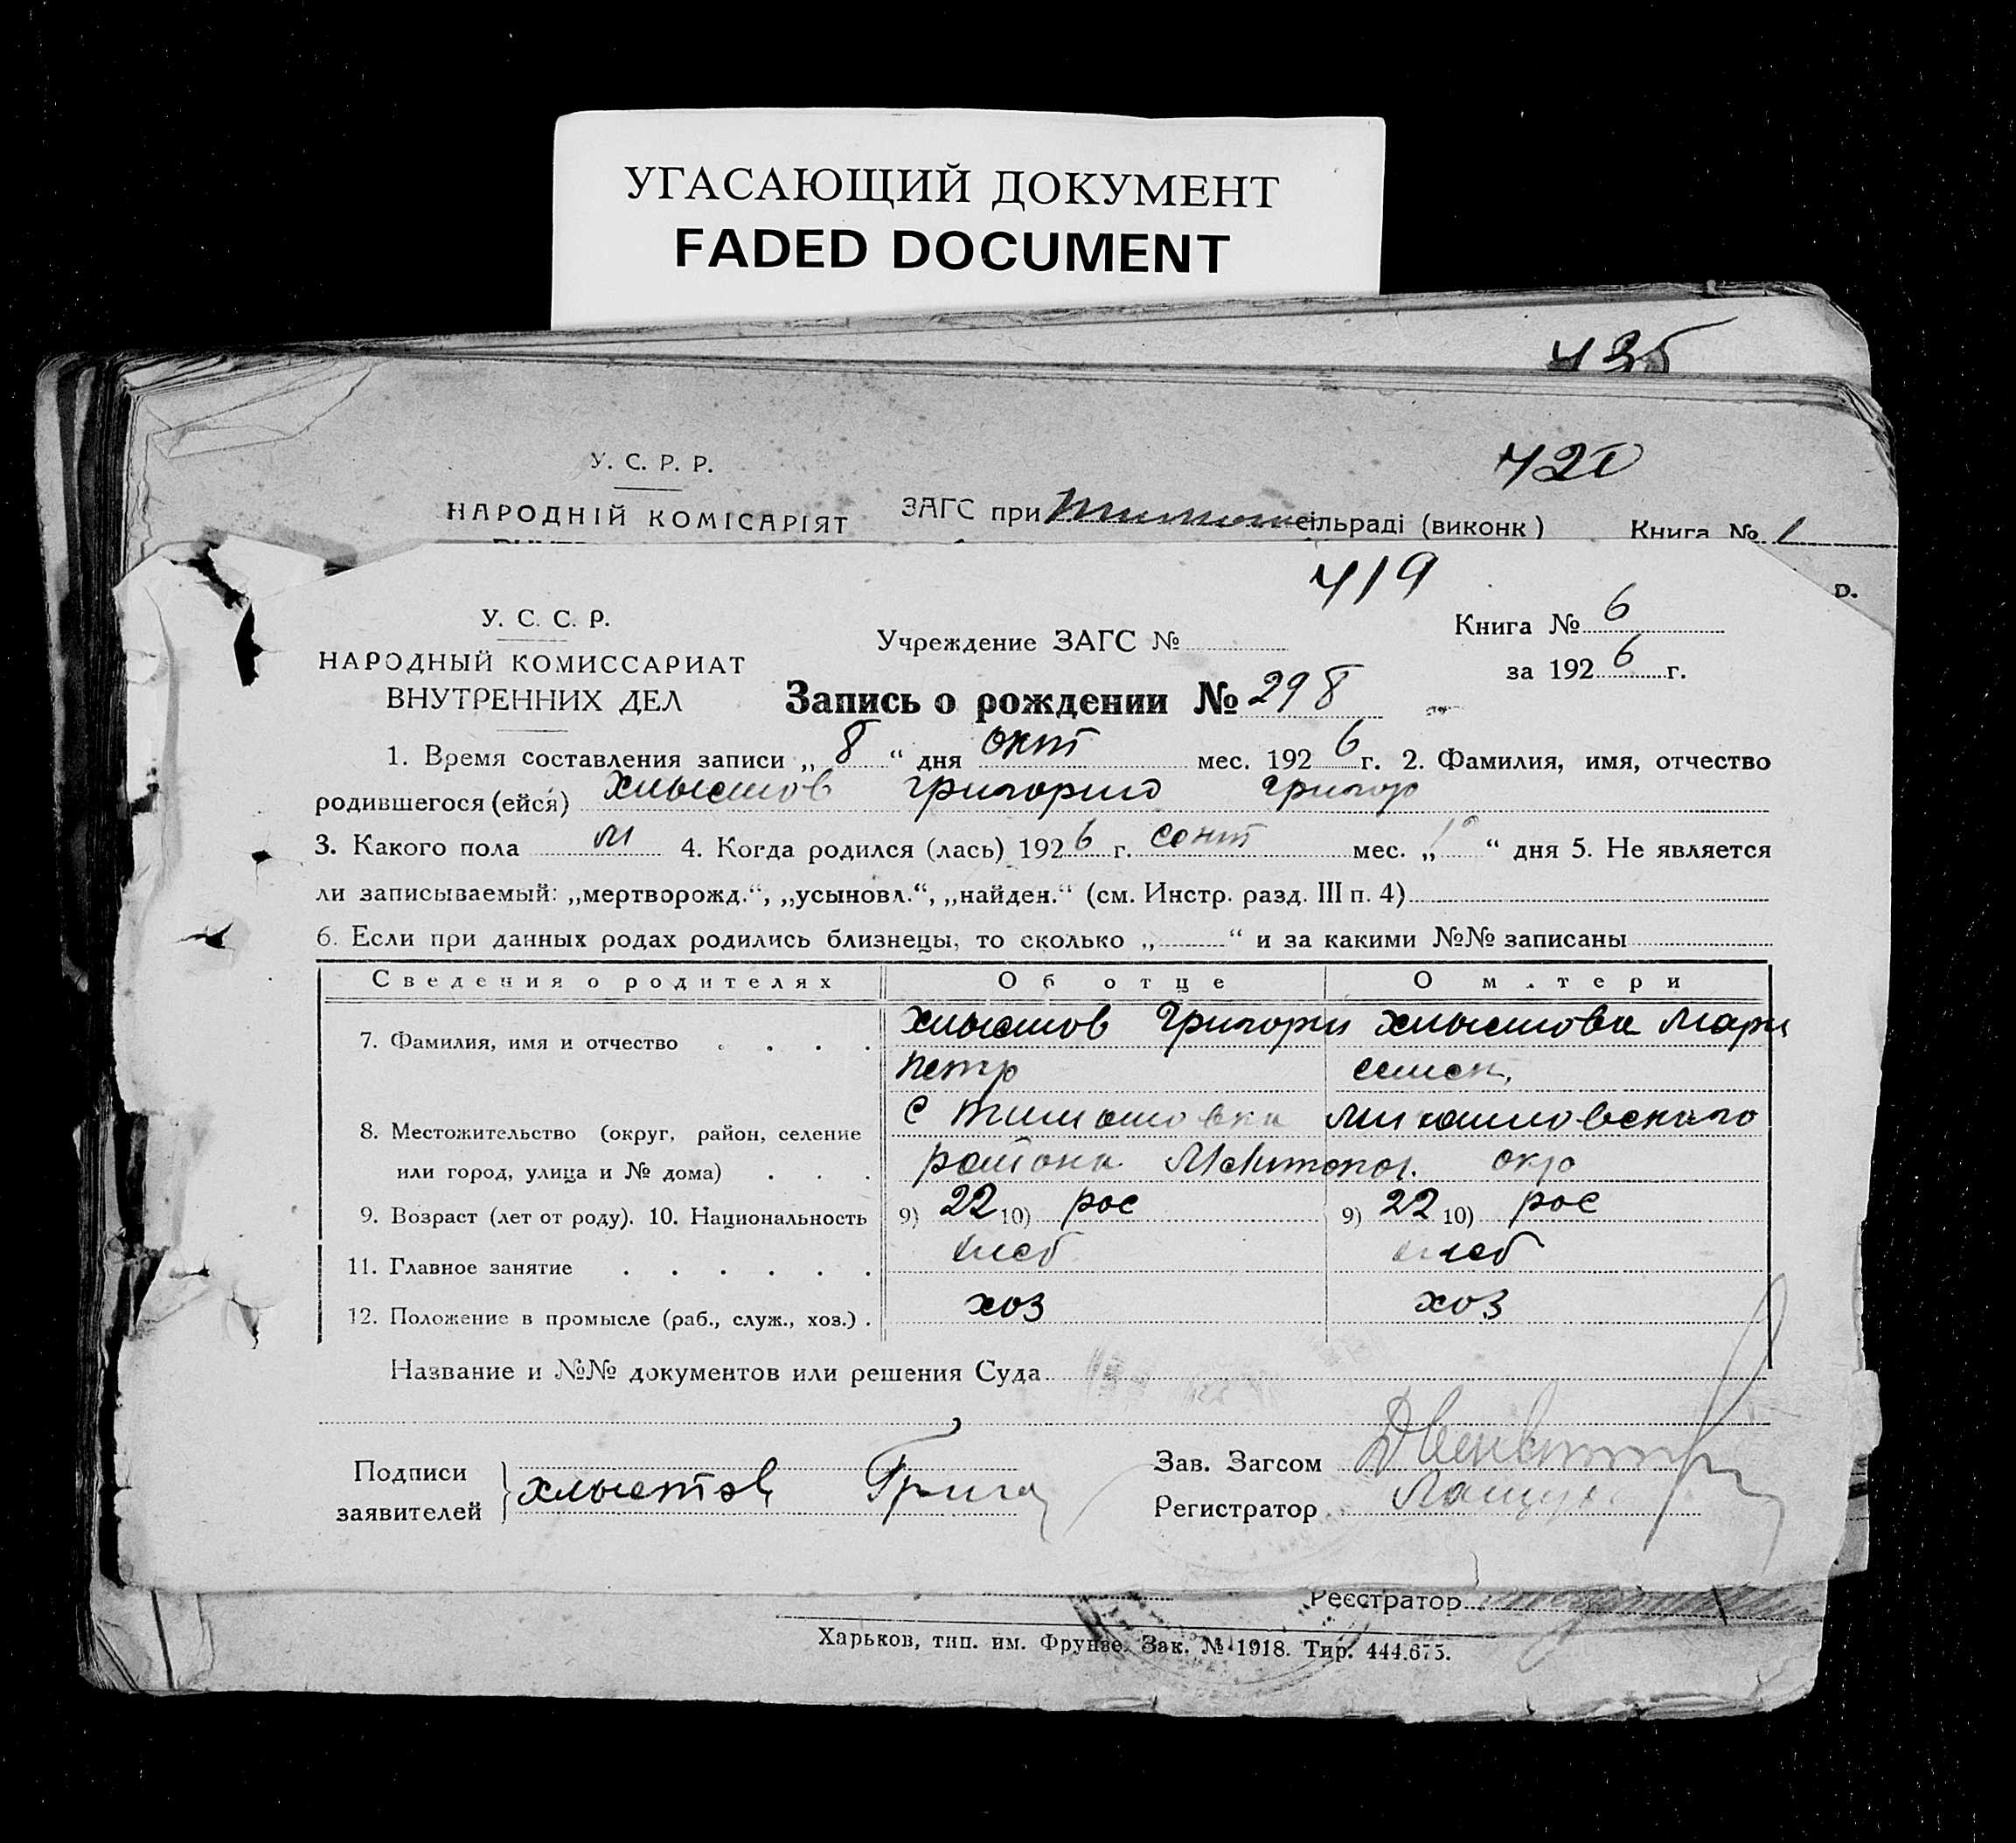 УГАСАЮЩИЙ ДОКУМЕНТ
FADED DOCUMENT
435
420
У. С. Р. Р.
НАРОДНІЙ КОМІСАРІЯТ
ЗАГС при сільраді (виконк) Книга № 1
419
У. С. С. Р.
НАРОДНЫЙ КОМИССАРИАТ
ВНУТРЕННИХ ДЕЛ
Учреждение ЗАГС №
Книга № 6
за 1926 г.
Запись о рождении № 298
1. Время составления записи „ 8 “ дня окт мес. 1926 г. 2. Фамилия, имя, отчество
родившегося (ейся) Хлыстов Григорий Григор
3. Какого пола м 4. Когда родился (лась) 1926 г. сент мес. „ “ дня 5. Не является
ли записываемый: „мертворожд.“, „усыновл.“, „найден.“ (см. Инстр. разд. III п. 4)
6. Если при данных родах родились близнецы, то сколько „ “ и за какими №№ записаны
Сведения о родителях Об отце О м.тери
7. Фамилия, имя и отчество Хлыстов Григори Хлыстова Мари
петр семен.
8. Местожительство (округ, район, селение с Тимошовка Михайловского
или город, улица и № дома) района Мелитопол. окр
9. Возраст (лет от роду). 10. Национальность 9) 22 10) рос 9) 22 10) рос
11. Главное занятие хлеб хлеб
12. Положение в промысле (раб., служ., хоз.) хоз хоз
Название и №№ документов или решения Суда
Подписи
заявителей Хлыстов Григо
Зав. Загсом
Регистратор
Реєстратор
Харьков, тип. им. Фрунзе. Зак. № 1918. Тир. 444.675.